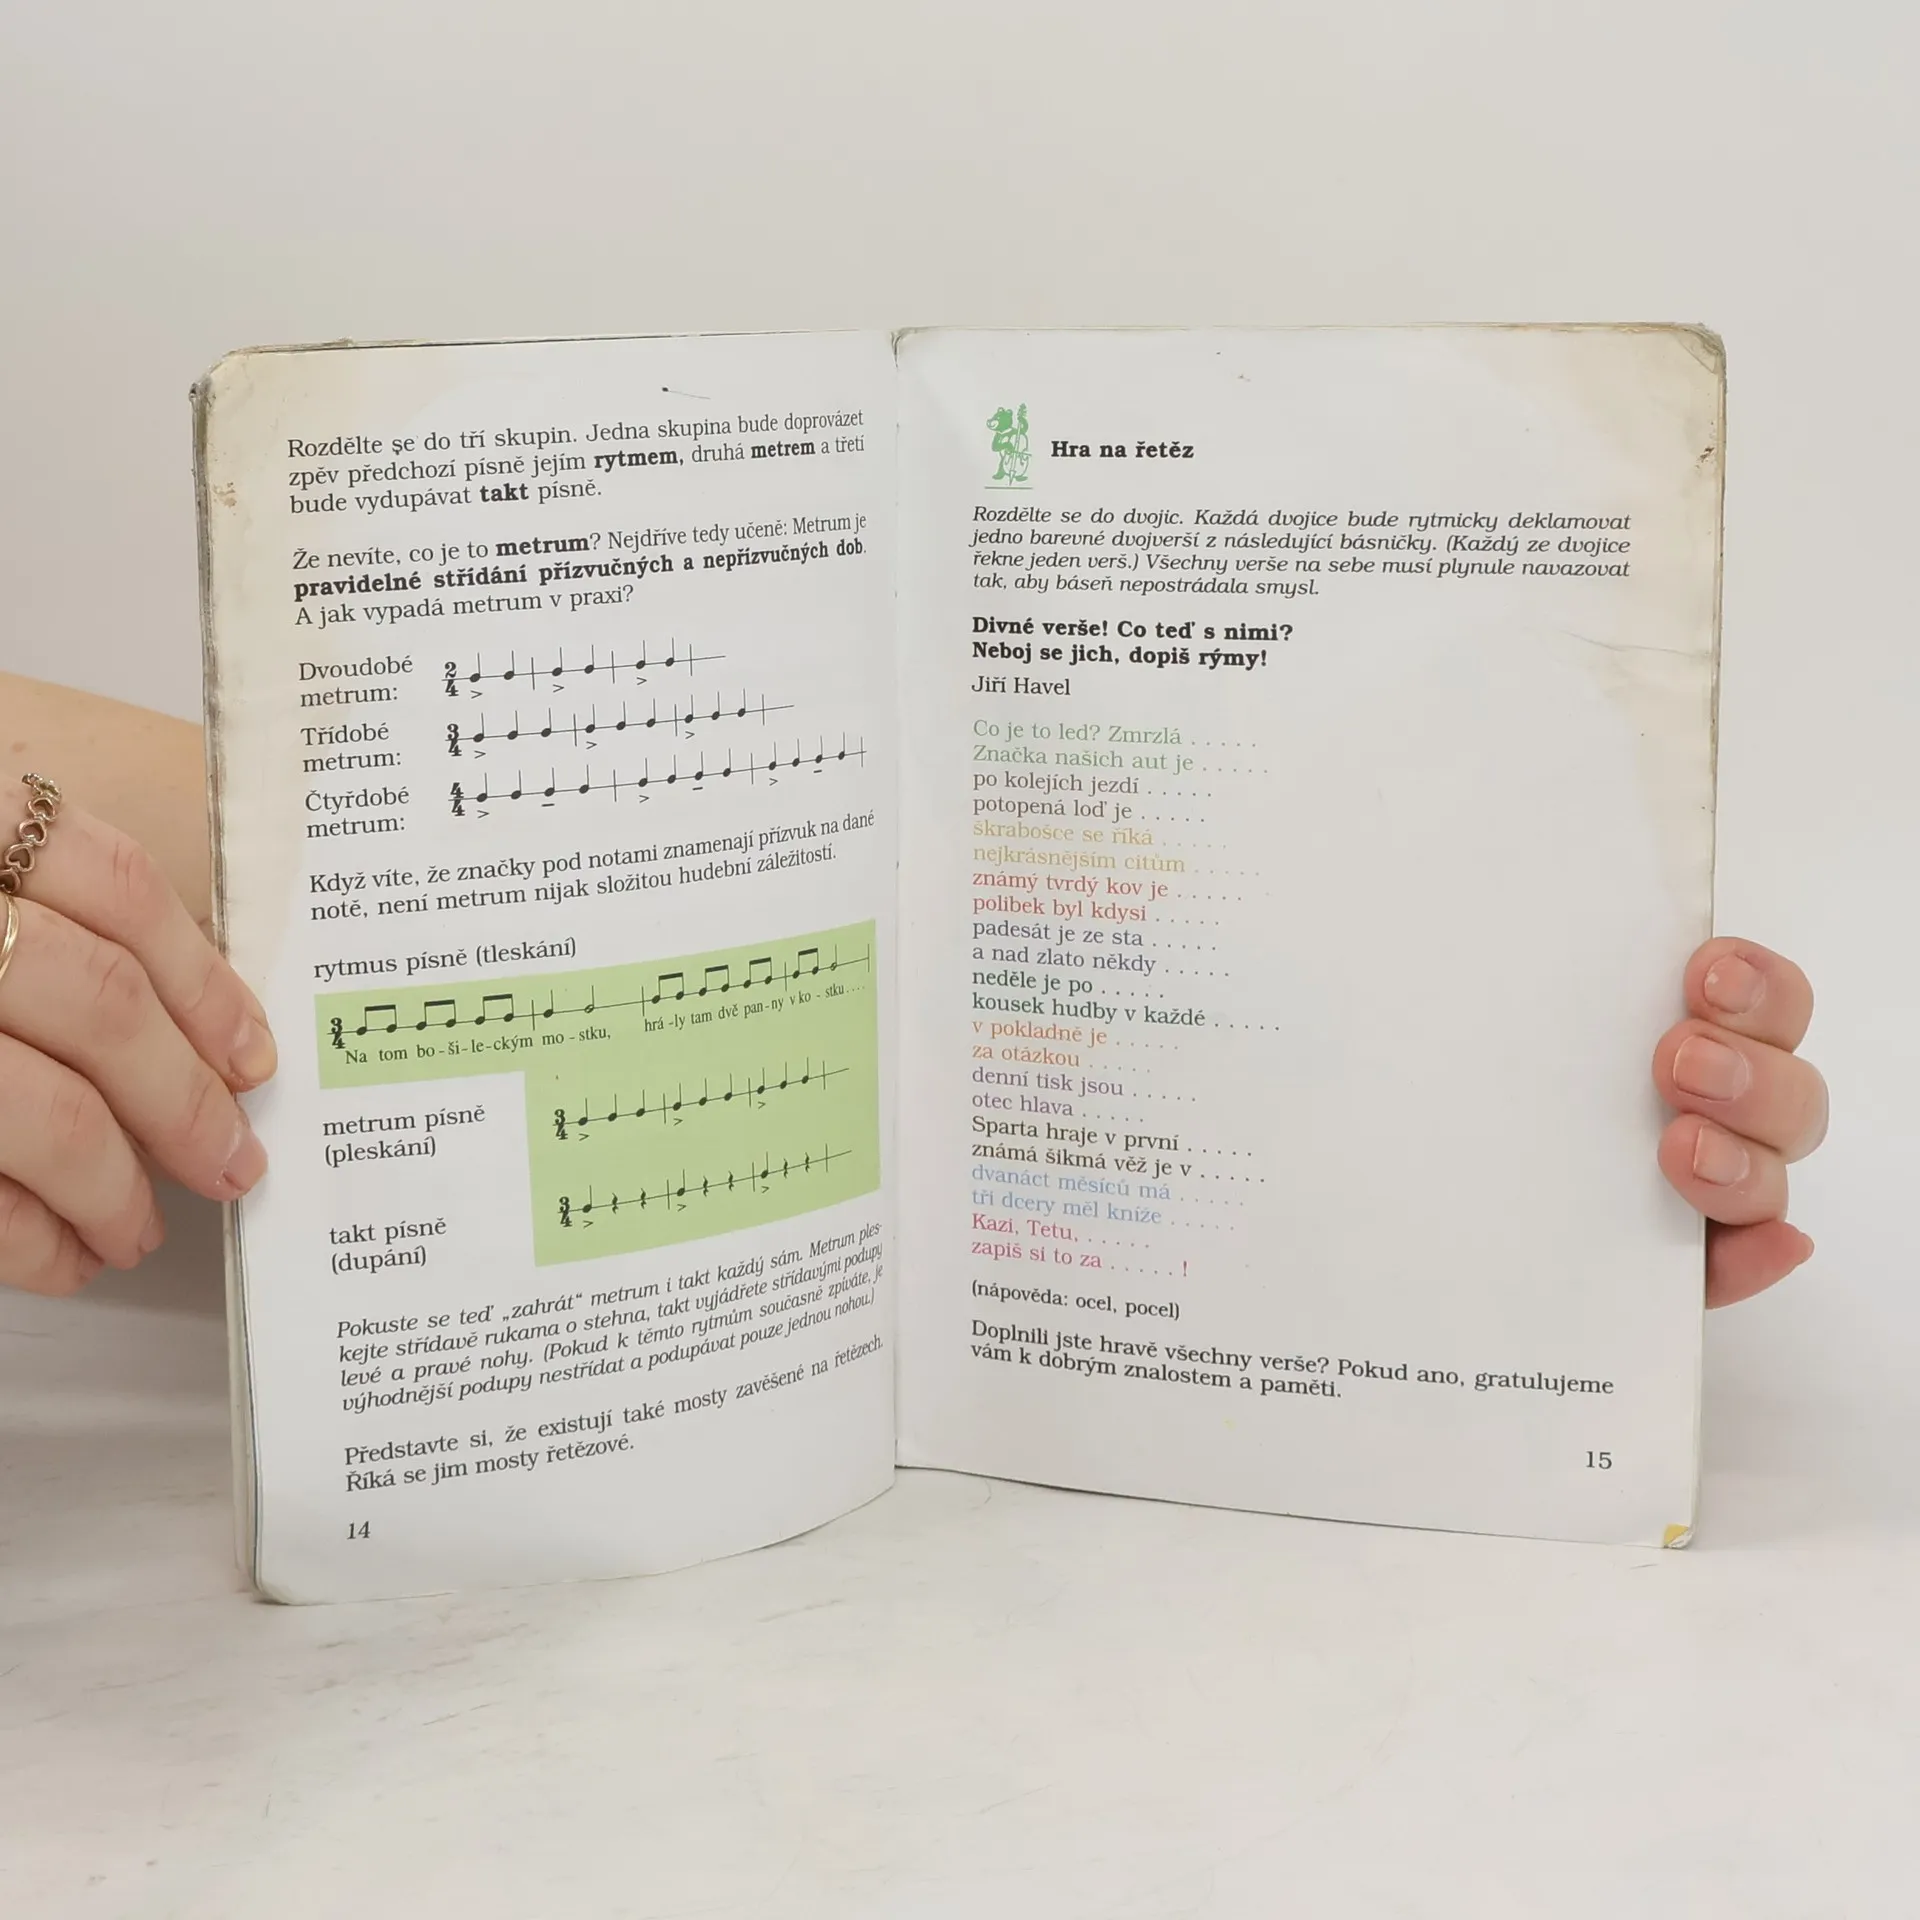 Rozdělte se do tří skupin. Jedna skupina bude doprovázet
zpěv předchozí písně jejím rytmem, druhá metrem a třetí
bude vydupávat takt písně.
Že nevíte, co je to metrum? Nejdříve tedy učeně: Metrum je
pravidelné střídání přízvučných a nepřízvučných dob.
A jak vypadá metrum v praxi?
Dvoudobé
metrum:
2
4
Třídobé
metrum:
3
4
Čtyřdobé
metrum:
4
4
Když víte, že značky pod notami znamenají přízvuk na dané
notě, není metrum nijak složitou hudební záležitostí.
rytmus písně (tleskání)
3
4
Na tom bo-ši-le-ckým mo-stku, hrá-ly tam dvě pan-ny v ko-stku....
metrum písně
(pleskání)
3
4
takt písně
(dupání)
3
4
Pokuste se teď „zahrát“ metrum i takt každý sám. Metrum ples-
kejte střídavě rukama o stehna, takt vyjádřete střídavými podupy
levé a pravé nohy. (Pokud k těmto rytmům současně zpíváte, je
výhodnější podupy nestřídat a podupávat pouze jednou nohou.)
Představte si, že existují také mosty zavěšené na řetězech.
Říká se jim mosty řetězové.
14
Hra na řetěz
Rozdělte se do dvojic. Každá dvojice bude rytmicky deklamovat
jedno barevné dvojverší z následující básničky. (Každý ze dvojice
řekne jeden verš.) Všechny verše na sebe musí plynule navazovat
tak, aby báseň nepostrádala smysl.
Divné verše! Co teď s nimi?
Neboj se jich, dopiš rýmy!
Jiří Havel
Co je to led? Zmrzlá . . . . .
Značka našich aut je . . . . .
po kolejích jezdí . . . . .
potopená loď je . . . . .
škrabošce se říká . . . . .
nejkrásnějším citům . . . . .
známý tvrdý kov je . . . . .
polibek byl kdysi . . . . .
padesát je ze sta . . . . .
a nad zlato někdy . . . . .
neděle je po . . . . .
kousek hudby v každé . . . . .
v pokladně je . . . . .
za otázkou . . . . .
denní tisk jsou . . . . .
otec hlava . . . . .
Sparta hraje v první . . . . .
známá šikmá věž je v . . . . .
dvanáct měsíců má . . . . .
tři dcery měl kníže . . . . .
Kazi, Tetu, . . . . .
zapiš si to za . . . . . !
(nápověda: ocel, pocel)
Doplnili jste hravě všechny verše? Pokud ano, gratulujeme
vám k dobrým znalostem a paměti.
15